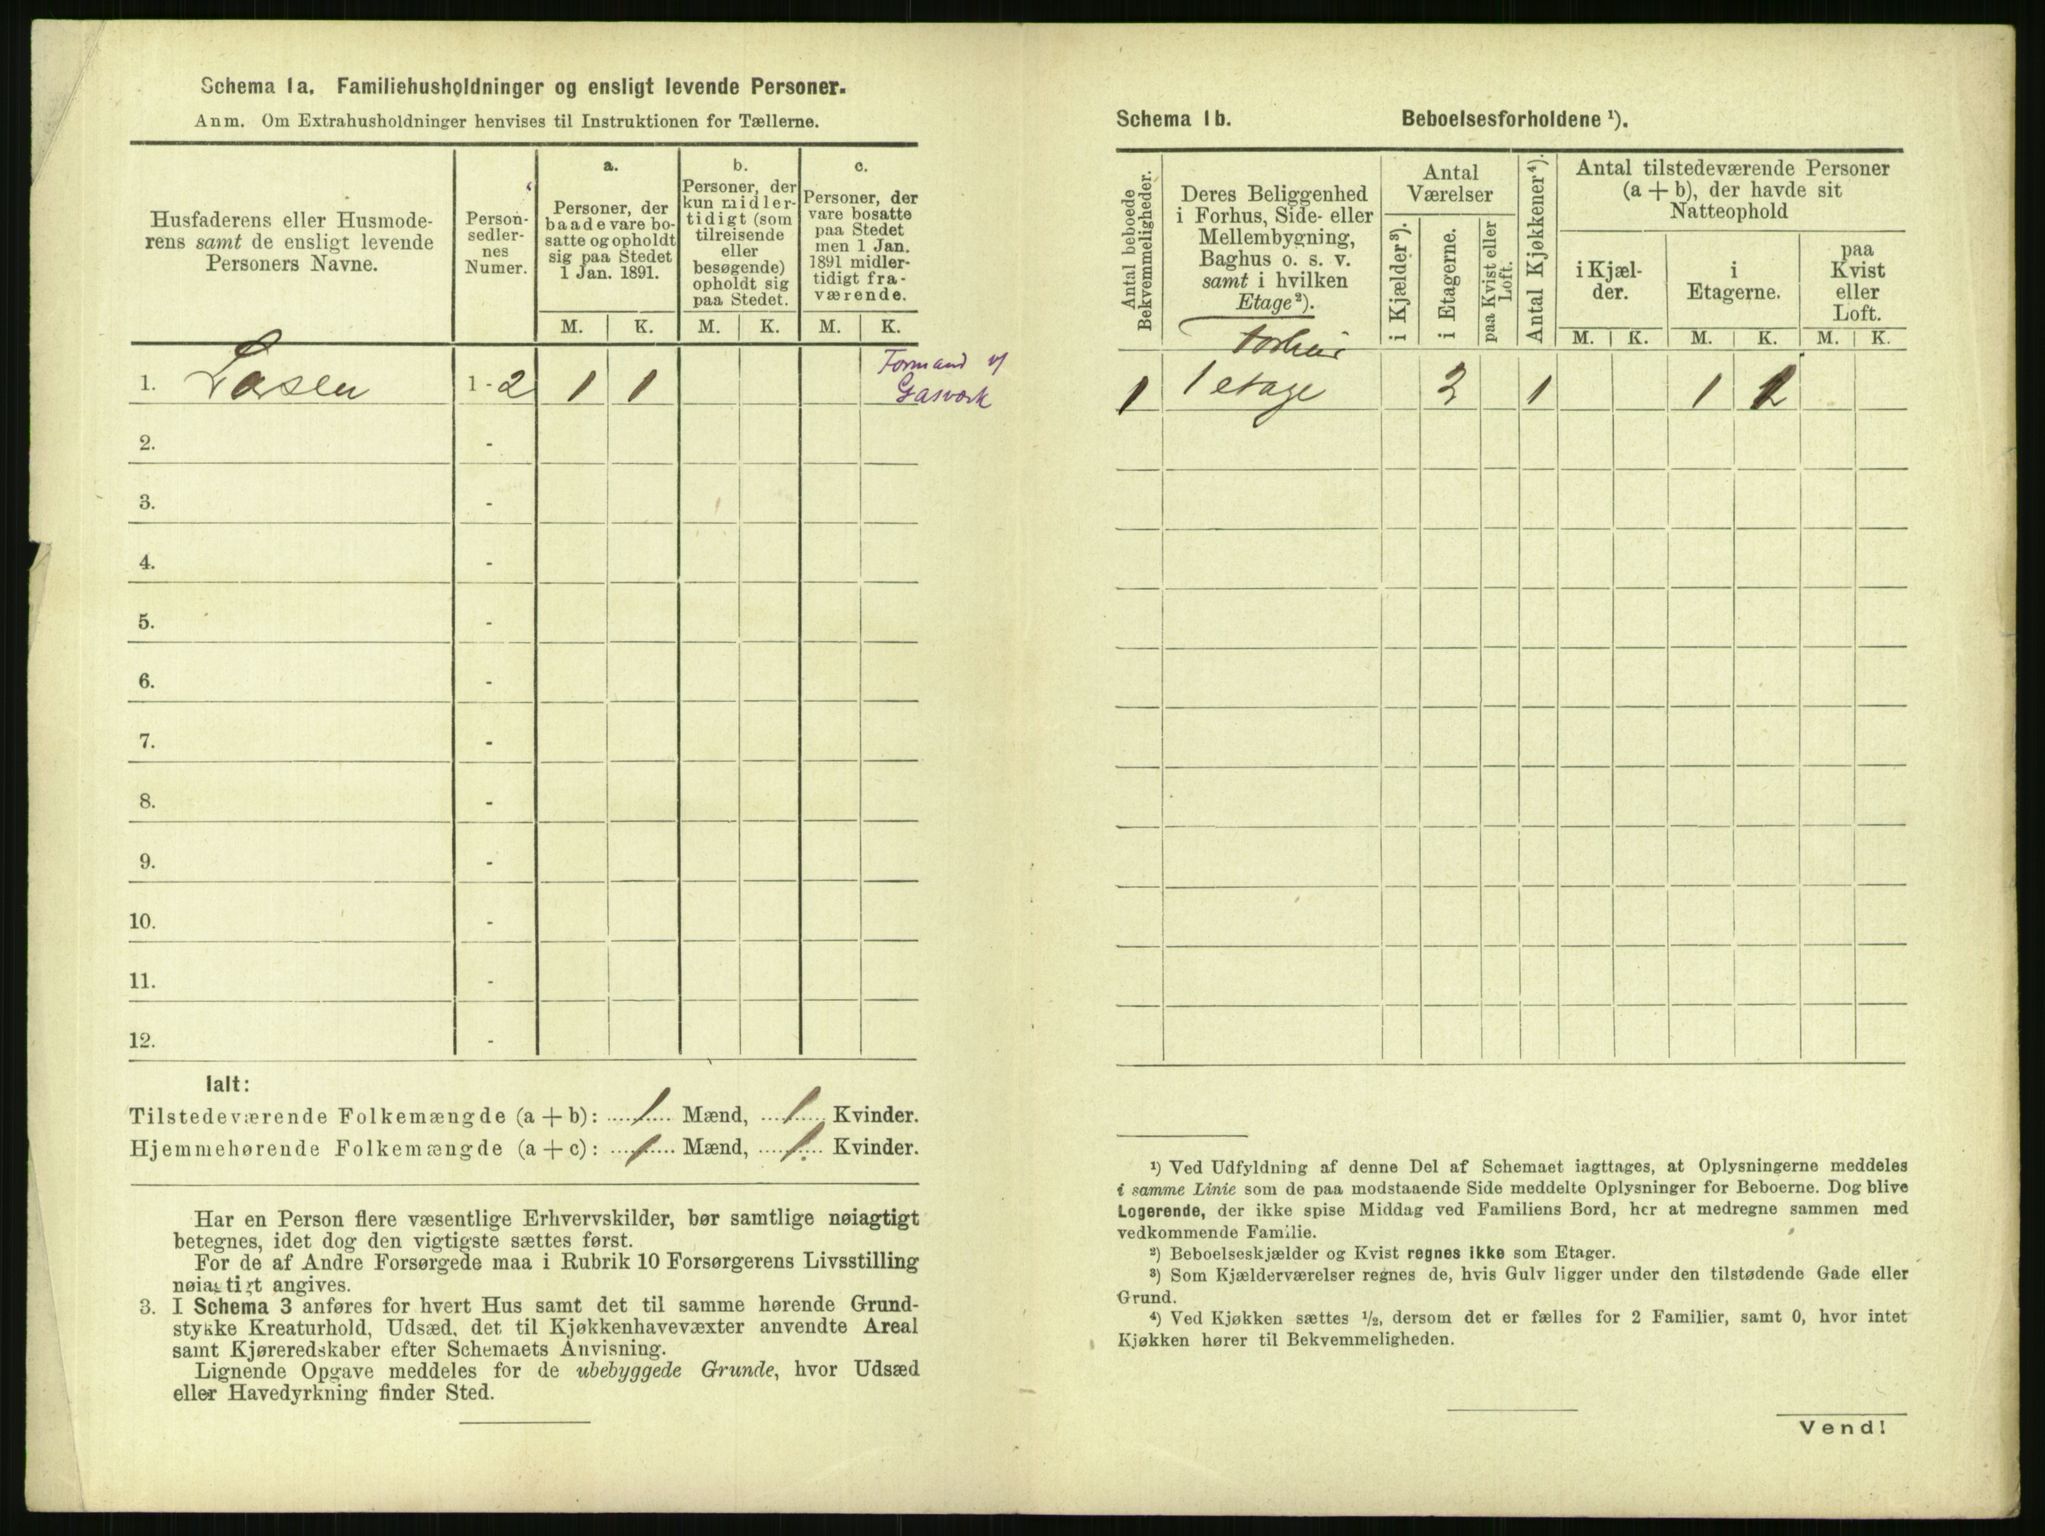 Schema 1a. Familiehusholdninger og ensligt levende Personer.
Anm. Om Extrahusholdninger henvises til Instruktionen for Tællerne.
Husfaderens eller Husmode-
rens samt de ensligt levende
Personers Navne.
Person-
sedler-
nes
Numer.
a.
Personer, der
baade vare bo-
satte og opholdt
sig paa Stedet
1 Jan. 1891.
b.
Personer, der
kun midler-
tidigt (som
tilreisende
eller
besøgende)
opholdt sig
paa Stedet.
c.
Personer, der
vare bosatte
paa Stedet
men 1 Jan.
1891 midler-
tidigt fra-
værende.
M. K. M. K. M. K.
1. Larsen 1 - 2 1 1 Formand v/
Gasværk
2. -
3. -
4. -
5. -
6. -
7. -
8. -
9. -
10. -
11. -
12. -
Ialt:
Tilstedeværende Folkemængde (a + b): 1 Mænd, 1 Kvinder.
Hjemmehørende Folkemængde (a + c): 1 Mænd, 1 Kvinder.
Har en Person flere væsentlige Erhvervskilder, bør samtlige nøiagtigt
betegnes, idet dog den vigtigste sættes først.
For de af Andre Forsørgede maa i Rubrik 10 Forsørgerens Livsstilling
nøiagtigt angives.
3. I Schema 3 anføres for hvert Hus samt det til samme hørende Grund-
stykke Kreaturhold, Udsæd, det til Kjøkkenhavevæxter anvendte Areal
samt Kjøreredskaber efter Schemaets Anvisning.
Lignende Opgave meddeles for de ubebyggede Grunde, hvor Udsæd
eller Havedyrkning finder Sted.
Schema 1b. Beboelsesforholdene ¹).
Antal beboede
Bekvemmeligheder.
Deres Beliggenhed
i Forhus, Side- eller
Mellembygning,
Baghus o. s. v.
samt i hvilken
Etage²).
Antal
Værelser
i Kjælder³).
i Etagerne.
paa Kvist eller
Loft.
Antal Kjøkkener⁴).
Antal tilstedeværende Personer
(a + b), der havde sit
Natteophold
i Kjæl-
der.
i
Etagerne.
paa
Kvist
eller
Loft.
M. K. M. K. M. K.
Forhus
1 1 etage 2 1 1 1
¹) Ved Udfyldning af denne Del af Schemaet iagttages, at Oplysningerne meddeles
i samme Linie som de paa modstaaende Side meddelte Oplysninger for Beboerne. Dog blive
Logerende, der ikke spise Middag ved Familiens Bord, her at medregne sammen med
vedkommende Familie.
²) Beboelseskjælder og Kvist regnes ikke som Etager.
³) Som Kjælderværelser regnes de, hvis Gulv ligger under den tilstødende Gade eller
Grund.
⁴) Ved Kjøkken sættes ½, dersom det er fælles for 2 Familier, samt 0, hvor intet
Kjøkken hører til Bekvemmeligheden.
Vend!